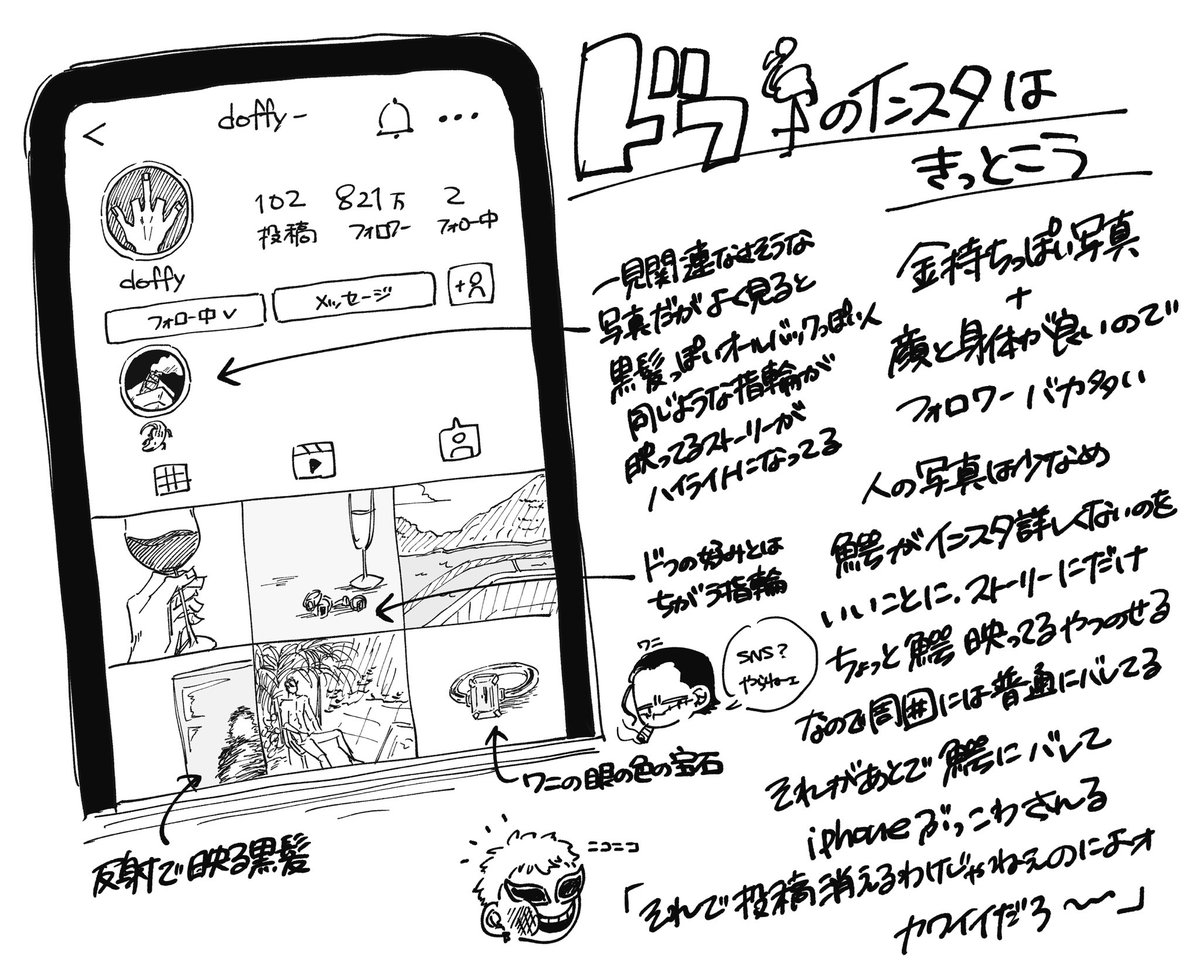 doffy-
102 821万 2
投稿 フォロワー フォロー中
doffy
フォロー中
メッセージ
ドフラのインスタは
きっとこう
一見関連なさそうな
写真だがよく見ると
黒髪っぽいオールバックっぽい人
同じような指輪が
映ってるストーリーが
ハイライトになってる
ドフの好みとは
ちがう指輪
金持ちっぽい写真
+
顔と身体が良いので
フォロワーバカ多い
人の写真は少なめ
鰐がインスタ詳しくないのを
いいことに、ストーリーにだけ
ちょっと鰐映ってるやつのせる
なので周囲には普通にバレてる
それがあとで鰐にバレて
iphoneぶっこわされる
「それで投稿消えるわけじゃねぇのによォ
カワイイだろ〜〜」
ワニ
SNS?
やらねーェ
ワニの眼の色の宝石
反射で映る黒髪
ニコニコ